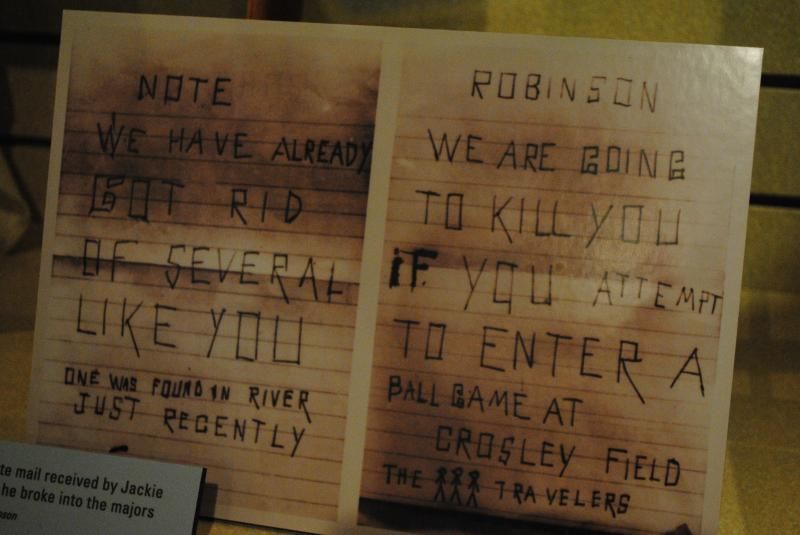 NOTE
WE HAVE ALREADY
GOT RID
OF SEVERAL
LIKE YOU
ONE WAS FOUND IN RIVER
JUST RECENTLY
ROBINSON
WE ARE GOING
TO KILL YOU
IF YOU ATTEMPT
TO ENTER A
BALL GAME AT
CROSLEY FIELD
THE TRAVELERS
te mail received by Jackie
he broke into the majors